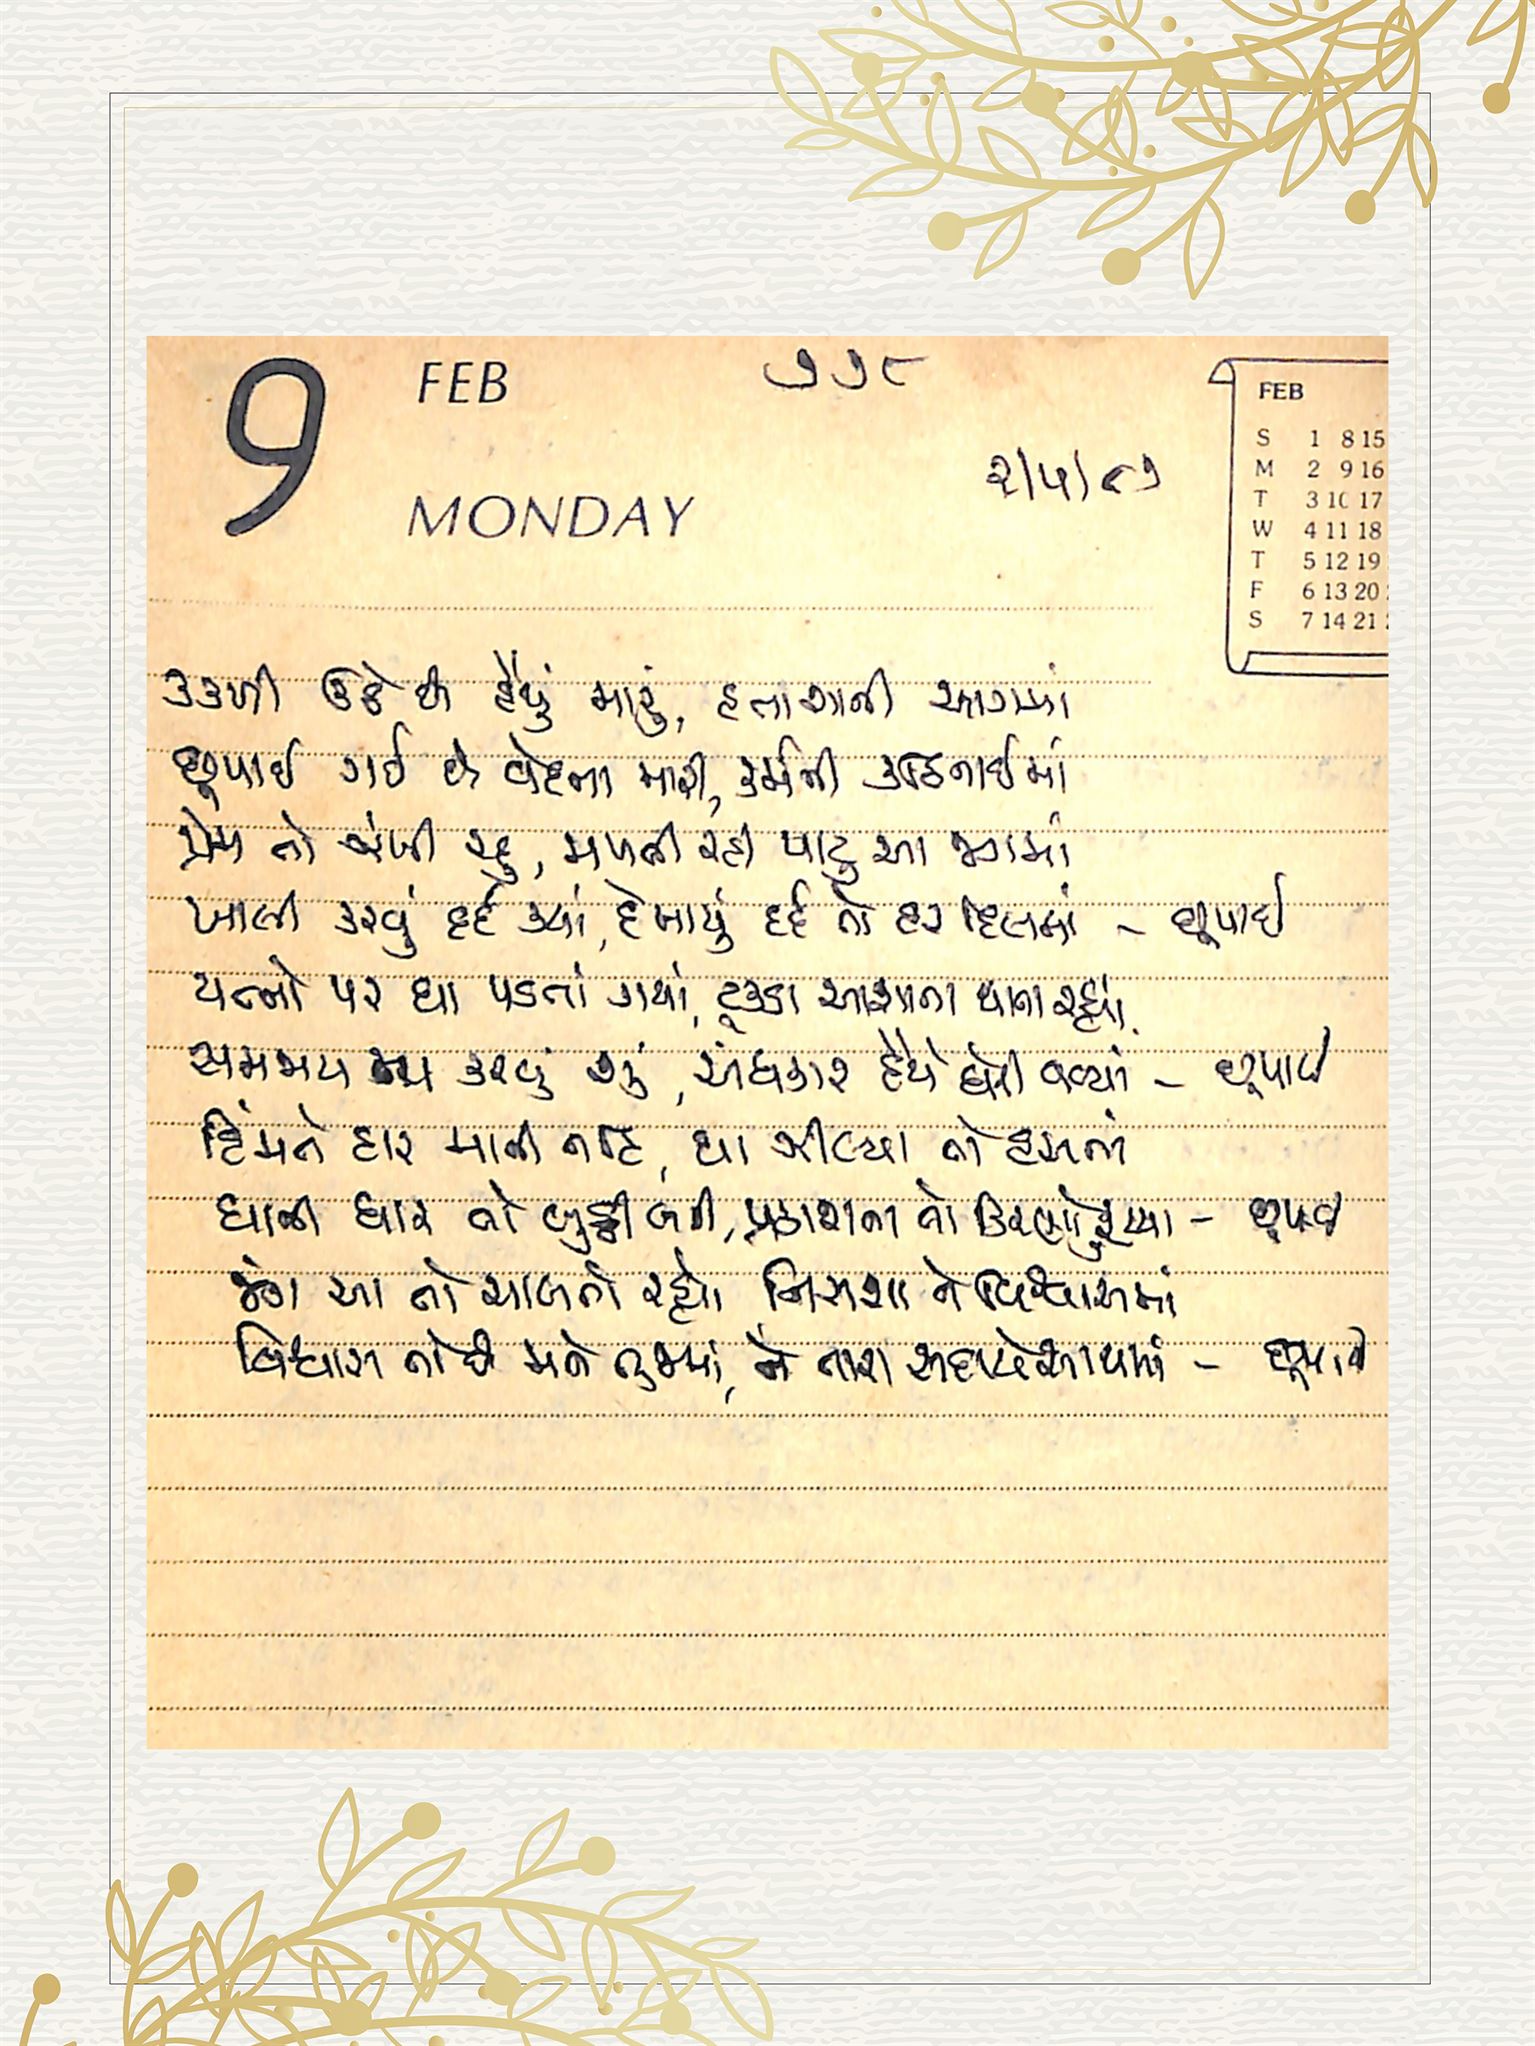 9 FEB
MONDAY
૭૭૮
૨/૫/૮૭
FEB
S 1 8 15
M 2 9 16
T 3 10 17
W 4 11 18
T 5 12 19
F 6 13 20
S 7 14 21
કકળી ઊઠે છે હૈયું મારું, હતાશાની આગમાં
છૂપાઈ ગઈ છે વેદના મારી, કર્મની કઠિનાઈમાં
પ્રેમ તો ઝંખી રહુ, મળતી રહી પાટુ આ જગમાં
ખાલી કરવું દર્દ ક્યાં, દેખાયું દર્દ તો હર દિલમાં - છૂપાઈ
યત્નો પર ઘા પડતાં ગયાં, ટૂકડા આશાના થાતા રહ્યાં
સમજાય ના કરવું શું, અંધકાર હૈયે ઘેરી વળ્યાં - છૂપાઈ
હિંમતે હાર માની નહિ, ઘા ઝીલ્યા તો હસતાં
ધાળી ધાર તો બુઠ્ઠી બની, પ્રકાશના તો કિરણો ફૂટ્યા - છૂપાઈ
જંગ આ તો ચાલતો રહ્યો નિરાશા ને વિશ્વાસમાં
વિશ્વાસ તો છે મને તુજમાં, ને તારા સદાયે સાથમાં - છૂપાઈ